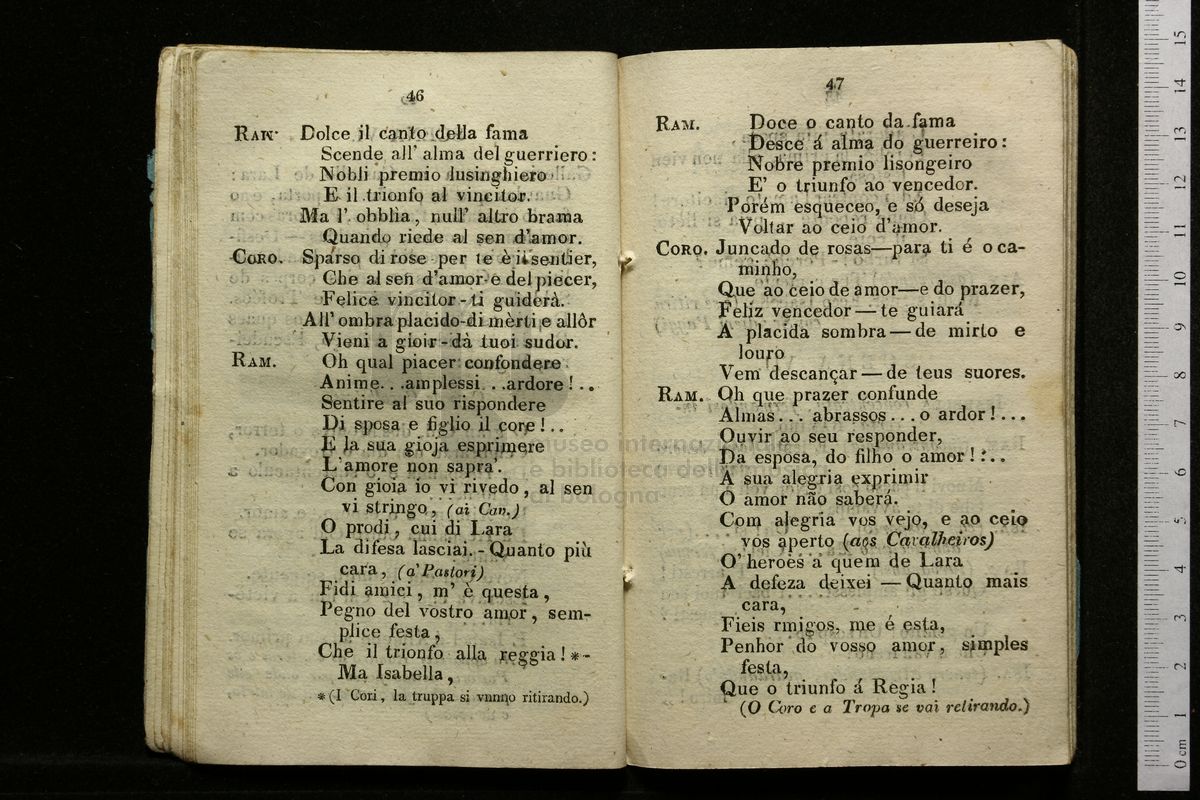 46
RAM. Dolce il canto della fama
Scende all' alma del guerriero :
Nobli premio lusinghiero
E il trionfo al vincitor.
Ma l' obblìa, null' altro brama
Quando riede al sen d'amor.
CORO. Sparso di rose per te è il sentier,
Che al sen d'amor e del piecer,
Felice vincitor - ti guiderà.
All' ombra placido-di mèrti e allôr
Vieni a gioir - dà tuoi sudor.
RAM. Oh qual piacer confondere
Anime. . .amplessi. . .ardore ! . .
Sentire al suo rispondere
Di sposa e figlio il core ! . .
E la sua gioja esprimere
L'amore non saprà.
Con gioia io vi rivedo, al sen
vi stringo, (ai Cav.)
O prodi, cui di Lara
La difesa lasciai. - Quanto più
cara, (a' Pastori)
Fidi amici, m' è questa,
Pegno del vostro amor, sem-
plice festa,
Che il trionfo alla reggia ! * -
Ma Isabella,
* (I Cori, la truppa si vnnno ritirando.)
47
RAM. Doce o canto da fama
Desce á alma do guerreiro :
Nobre premio lisongeiro
E' o triunfo ao vencedor.
Porém esqueceo, e só deseja
Voltar ao ceio d'amor.
CORO. Juncado de rosas—para ti é o ca-
minho,
Que ao ceio de amor—e do prazer,
Feliz vencedor — te guiará
A' placida sombra — de mirto e
louro
Vem descançar — de teus suores.
RAM. Oh que prazer confunde
Almas. . . abrassos . . . o ardor ! . . .
Ouvir ao seu responder,
Da esposa, do filho o amor ! : . .
A sua alegria exprimir
O amor não saberá.
Com alegria vos vejo, e ao ceio
vos aperto (aos Cavalheiros)
O' heroes a quem de Lara
A defeza deixei — Quanto mais
cara,
Fieis rmigos, me é esta,
Penhor do vosso amor, simples
festa,
Que o triunfo á Regia !
(O Coro e a Tropa se vai retirando.)